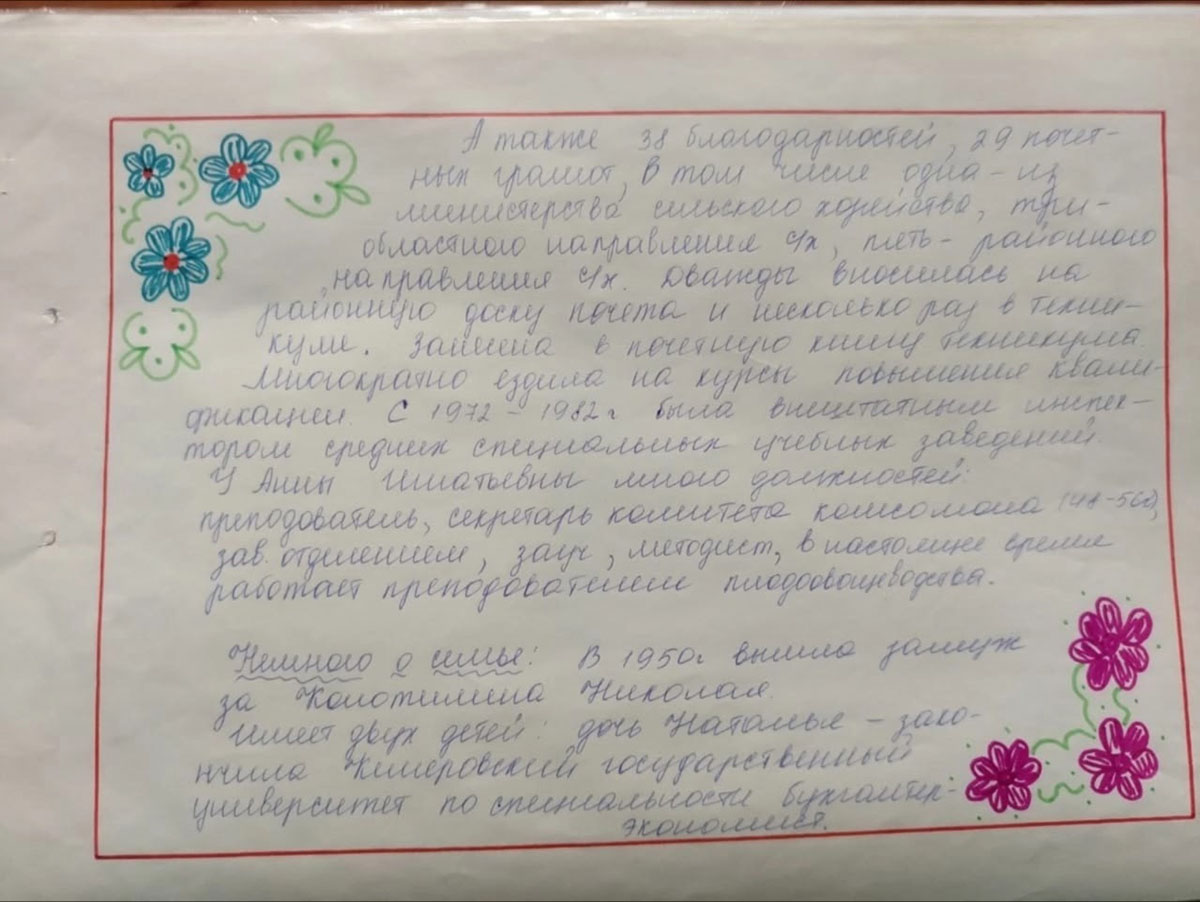 А также 38 благодарностей, 29 почет-
ных грамот, в том числе одна - из
министерства сельского хозяйства, три -
областного направления с/х, пять - районного
направления с/х. Дважды вносилась на
районную доску почета и несколько раз в техни-
куме. Занесена в почетную книгу техникума.
Многократно ездила на курсы повышения квали-
фикации. С 1972 - 1982г была внештатным инспек-
тором средних специальных учебных заведений.
У Анны Игнатьевны много должностей:
преподователь, секретарь комитета комсомола
зав. отделением, зауч, методист, в настоящее время
работает преподователем плодоовощеводства.
Немного о семье: В 1950г вышла замуж
за Николая.
Имеет двух детей: дочь Наталья - зако-
нчила Кемеровский государственный
университет по специальности бухгалтер-
экономист.